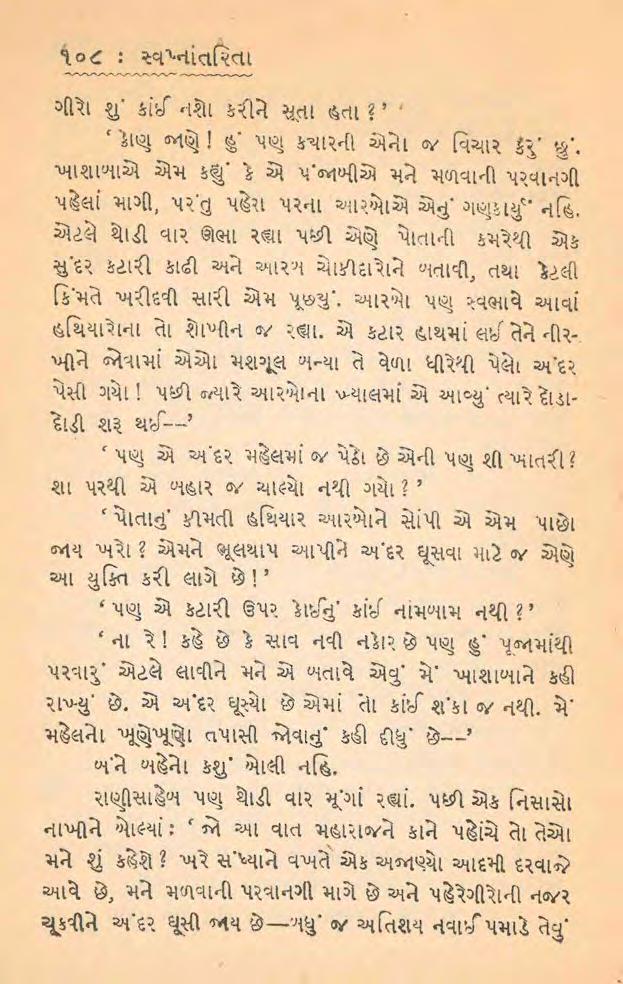 ૧૦૮ : સ્વપ્નાંતરિતા
ગીરો શું કાંઈ નશો કરીને સૂતા હતા ?’
‘ કોણ જાણે ! હું પણ ક્યારની એનો જ વિચાર કરું છું.
ખાશાબાએ એમ કહ્યું કે એ પંજાબીએ મને મળવાની પરવાનગી
પહેલાં માગી, પરંતુ પહેરા પરના આરબોએ એનું ગણકાર્યું નહિ.
એટલે થોડી વાર ઊભા રહ્યા પછી એણે પોતાની કમરેથી એક
સુંદર કટારી કાઢી અને આરબ ચોકીદારોને બતાવી, તથા કેટલી
કિંમતે ખરીદવી સારી એમ પૂછ્યું. આરબો પણ સ્વભાવે આવાં
હથિયારોના તો શોખીન જ રહ્યા. એ કટાર હાથમાં લઈ તેને નીર-
ખીને જોવામાં એઓ મશગૂલ બન્યા તે વેળા ધીરેથી પેલો અંદર
પેસી ગયો ! પછી જ્યારે આરબોના ખ્યાલમાં એ આવ્યું ત્યારે દોડા-
દોડી શરૂ થઈ--’
‘ પણ એ અંદર મહેલમાં જ પેઠો છે એની પણ શી ખાતરી ?
શા પરથી એ બહાર જ ચાલ્યો નથી ગયો ? ’
‘ પોતાનું કીમતી હથિયાર આરબોને સોંપી એ એમ પાછો
જાય ખરો ? એમને ભૂલથાપ આપીને અંદર ઘૂસવા માટે જ એણે
આ યુક્તિ કરી લાગે છે ! ’
‘ પણ એ કટારી ઉપર કોઈનું કાંઈ નાંમબામ નથી ? ’
‘ ના રે ! કહે છે કે સાવ નવી નકોર છે પણ હું પૂજામાંથી
પરવારું એટલે લાવીને મને એ બતાવે એવું મેં ખાશાબાને કહી
રાખ્યું છે. એ અંદર ઘૂસ્યો છે એમાં તો કાંઈ શંકા જ નથી. મેં
મહેલનો ખૂણેખૂણો તપાસી જોવાનું કહી દીધું છે--’
બંને બહેનો કશું બોલી નહિ.
રાણીસાહેબ પણ થોડી વાર મૂંગાં રહ્યાં. પછી એક નિસાસો
નાખીને બોલ્યાં : ‘ જો આ વાત મહારાજને કાને પહોંચે તો તેઓ
મને શું કહેશે ? ખરે સંધ્યાને વખતે એક અજાણ્યો આદમી દરવાજે
આવે છે, મને મળવાની પરવાનગી માગે છે અને પહેરેગીરોની નજર
ચૂકવીને અંદર ઘૂસી જાય છે—બધું જ અતિશય નવાઈ પમાડે તેવું